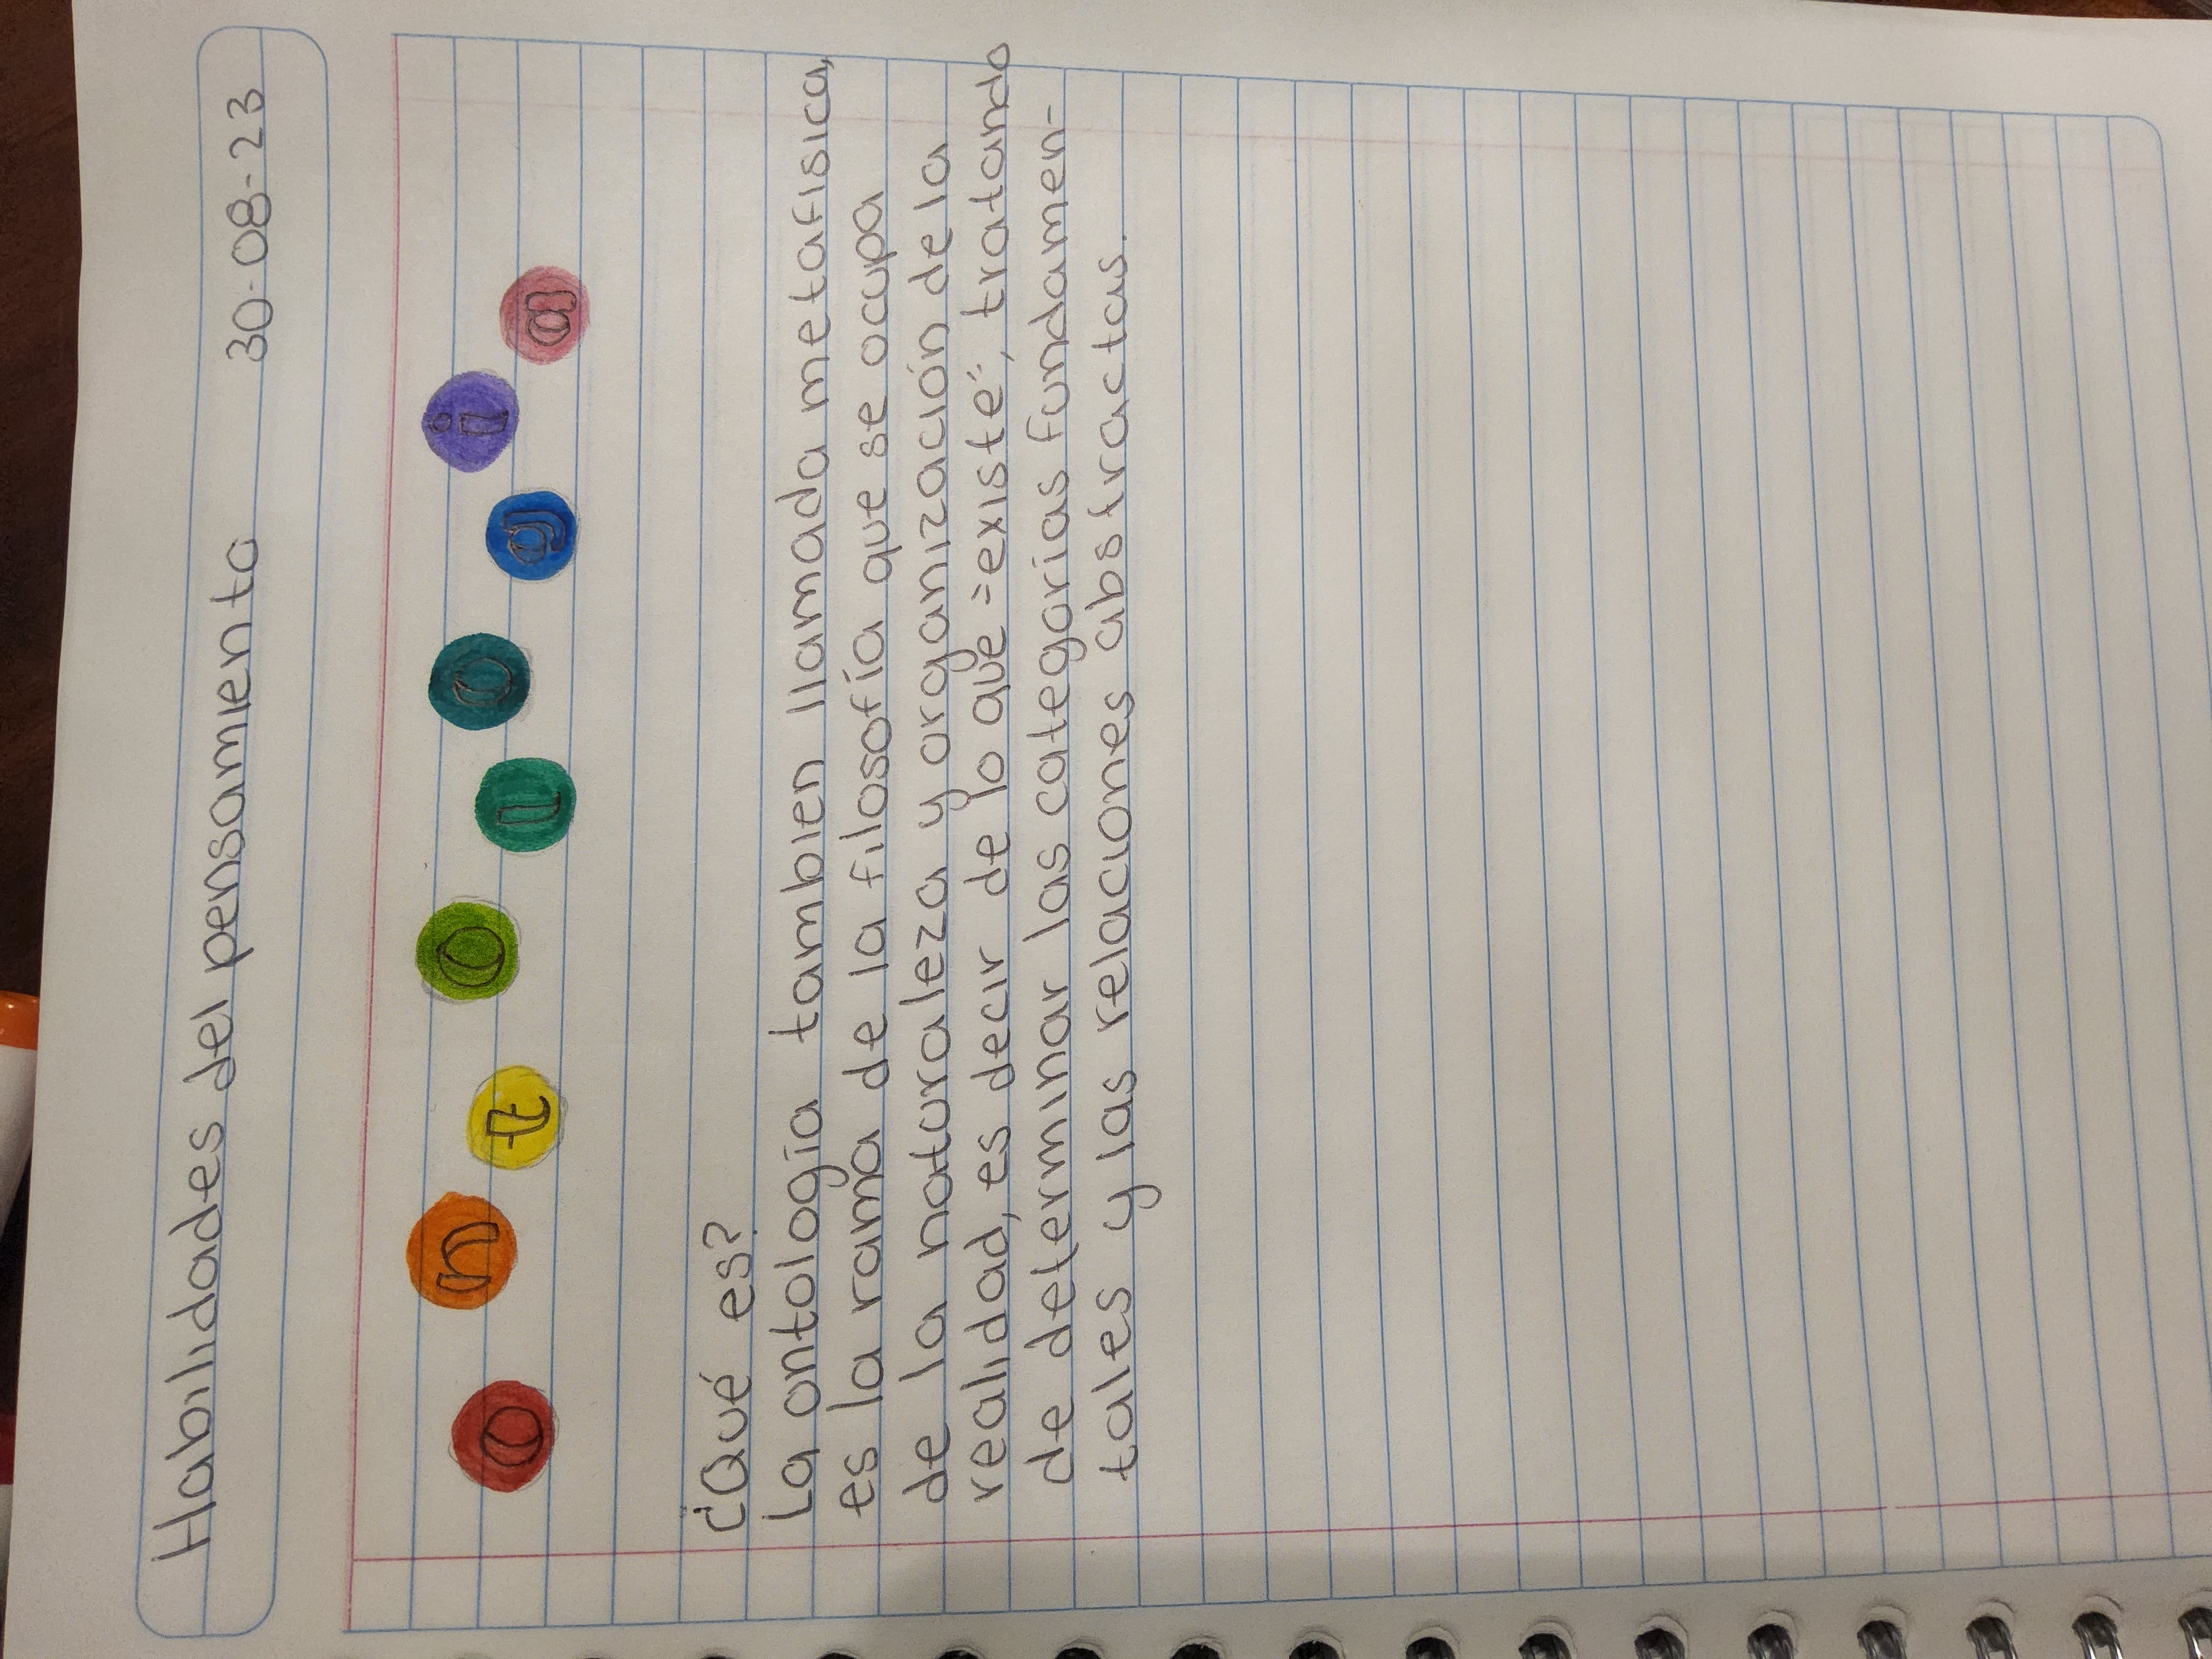 Habilidades del pensamiento 30-08-23
ontologia
¿Qué es?
La ontología tambien llamada metafisica,
es la rama de la filosofía que se ocupa
de la naturaleza y organización de la
realidad, es decir de lo que "existe", tratando
de determinar las categorias fundamen-
tales y las relaciones abstractas.